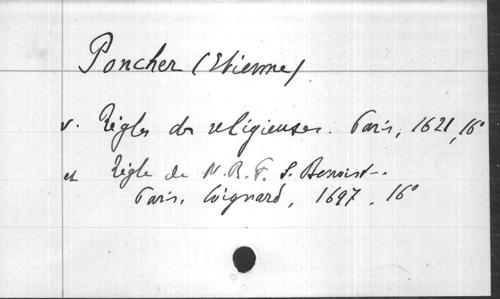 Poncher (Etienne)
v. Règles des religieuses. Paris, 1621, 16°
et Règle de N. B. P. S. Benoist..
Paris, Coignard, 1697, 16°